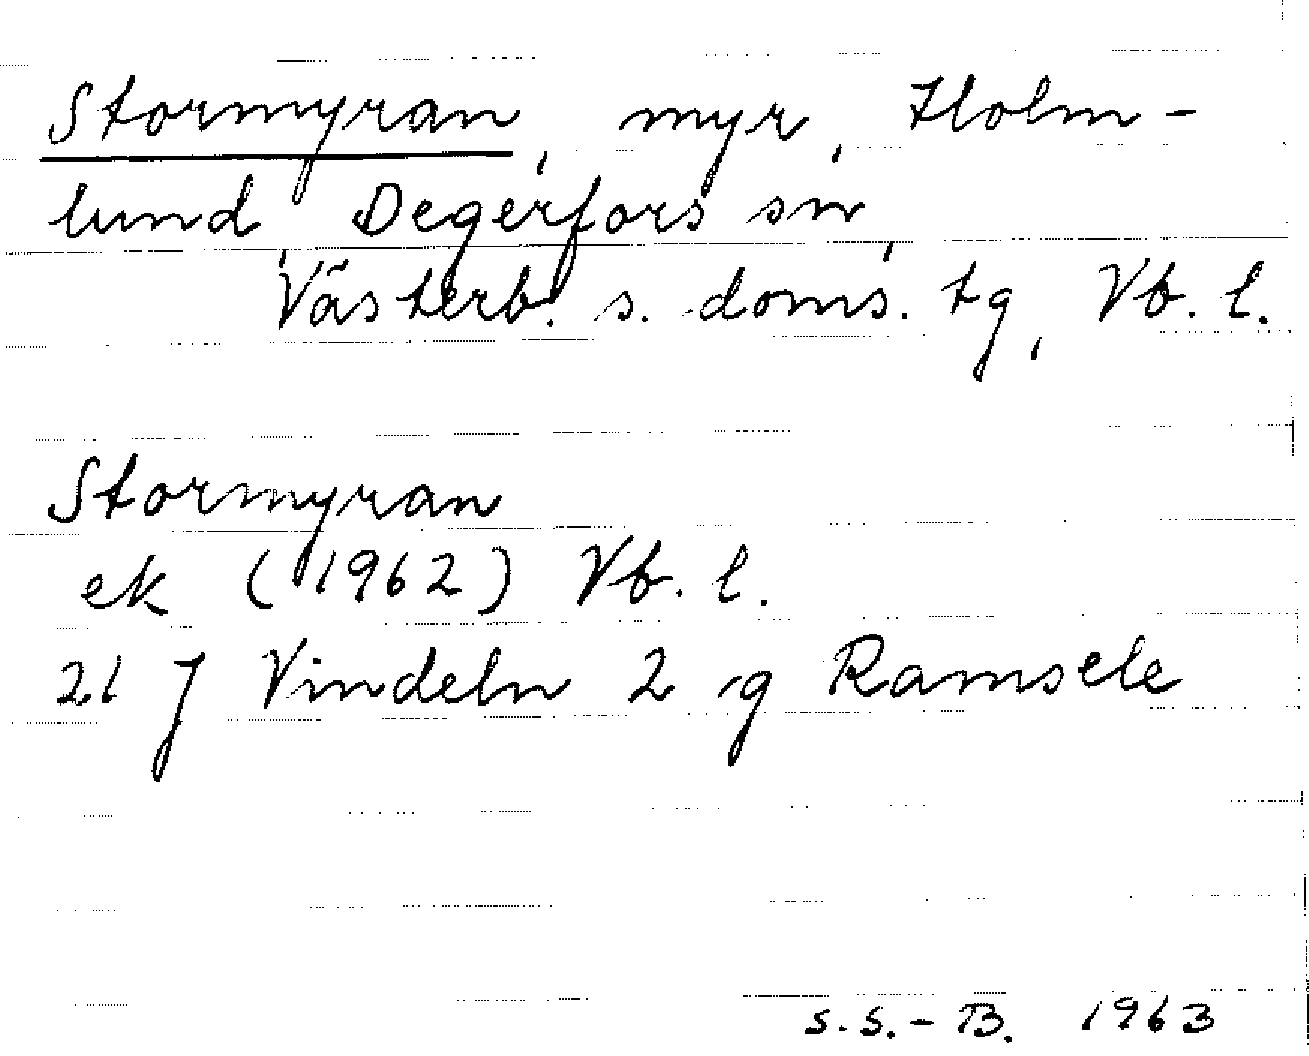 Stormyran, myr, Holm-
lund, Degerfors sn,
Västerb. s. doms. tg, Vb. l.
Stormyran
ek (1962) Vb. l.
21 J Vindeln 2 g Ramsele
S.S.-B. 1963